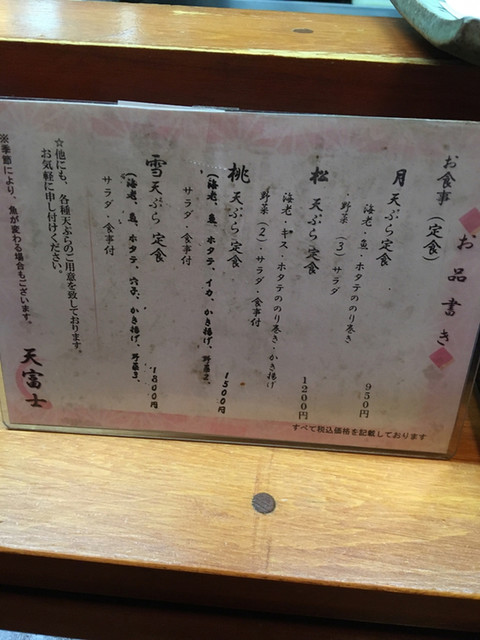 お品書き
お食事(定食)
月 天ぷら定食
海老・魚・ホタテののり巻き・
野菜(3)・サラダ
950円
松 天ぷら定食
海老・キス・ホタテののり巻き・かき揚げ
野菜(2)・サラダ・食事付
1200円
桃 天ぷら定食
(海老、魚、ホタテ、イカ、かき揚げ、野菜2、
サラダ・食事付
1500円
雪 天ぷら定食
(海老、魚、ホタテ、穴子、かき揚げ、野菜3、
サラダ・食事付
1800円
☆他にも、各種天ぷらのご用意を致しております。
お気軽に申し付けください。
※季節により、魚が変わる場合もございます。
天富士
すべて税込価格を記載しております